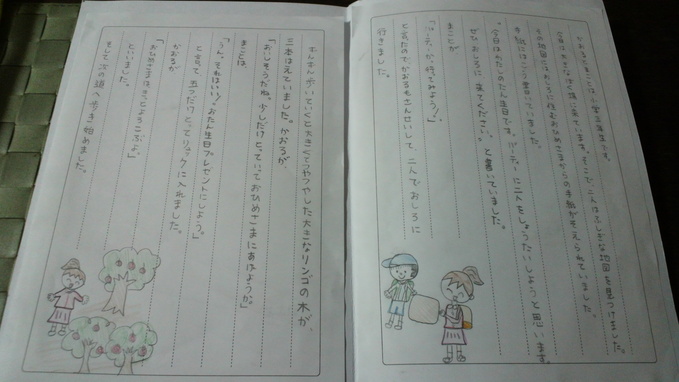 かおるとまことは小学三年生です。
今日は大きな森に来ています。そこで、二人はふしぎな地図を見つけました。
その地図にはおしろに住むおひめさまからの手紙がそえられていました。
手紙にはこう書かれていました。
「今日はわたしのたん生日です。パーティーに二人をしょうたいしようと思います。
ぜひおしろに来てください。」と書いていました。
まことが
行ってみよう!」
と言ったのでかおるもさんせいして、二人でおしろに
行きました。
ずんずん歩いていくと大きくてつやつやした大きなリンゴの木が、
三本はえていました。かおるが、
「おいしそうだね。少しだけとっていっておひめさまにあげようか。」
まことは、
「うん、それはいい!おたん生日プレゼントにしよう。」
と言って、五つだけとってリュックに入れました。
かおるが
「おひめさまはきっとよろこぶよ。」
といいました。
そして次の道へ歩き始めました。